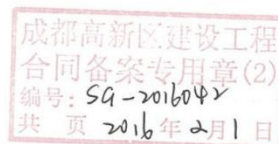 成都高新区建设工程
合同备案专用章(2)
编号: SG-2016042
共 页 2016年2月1日